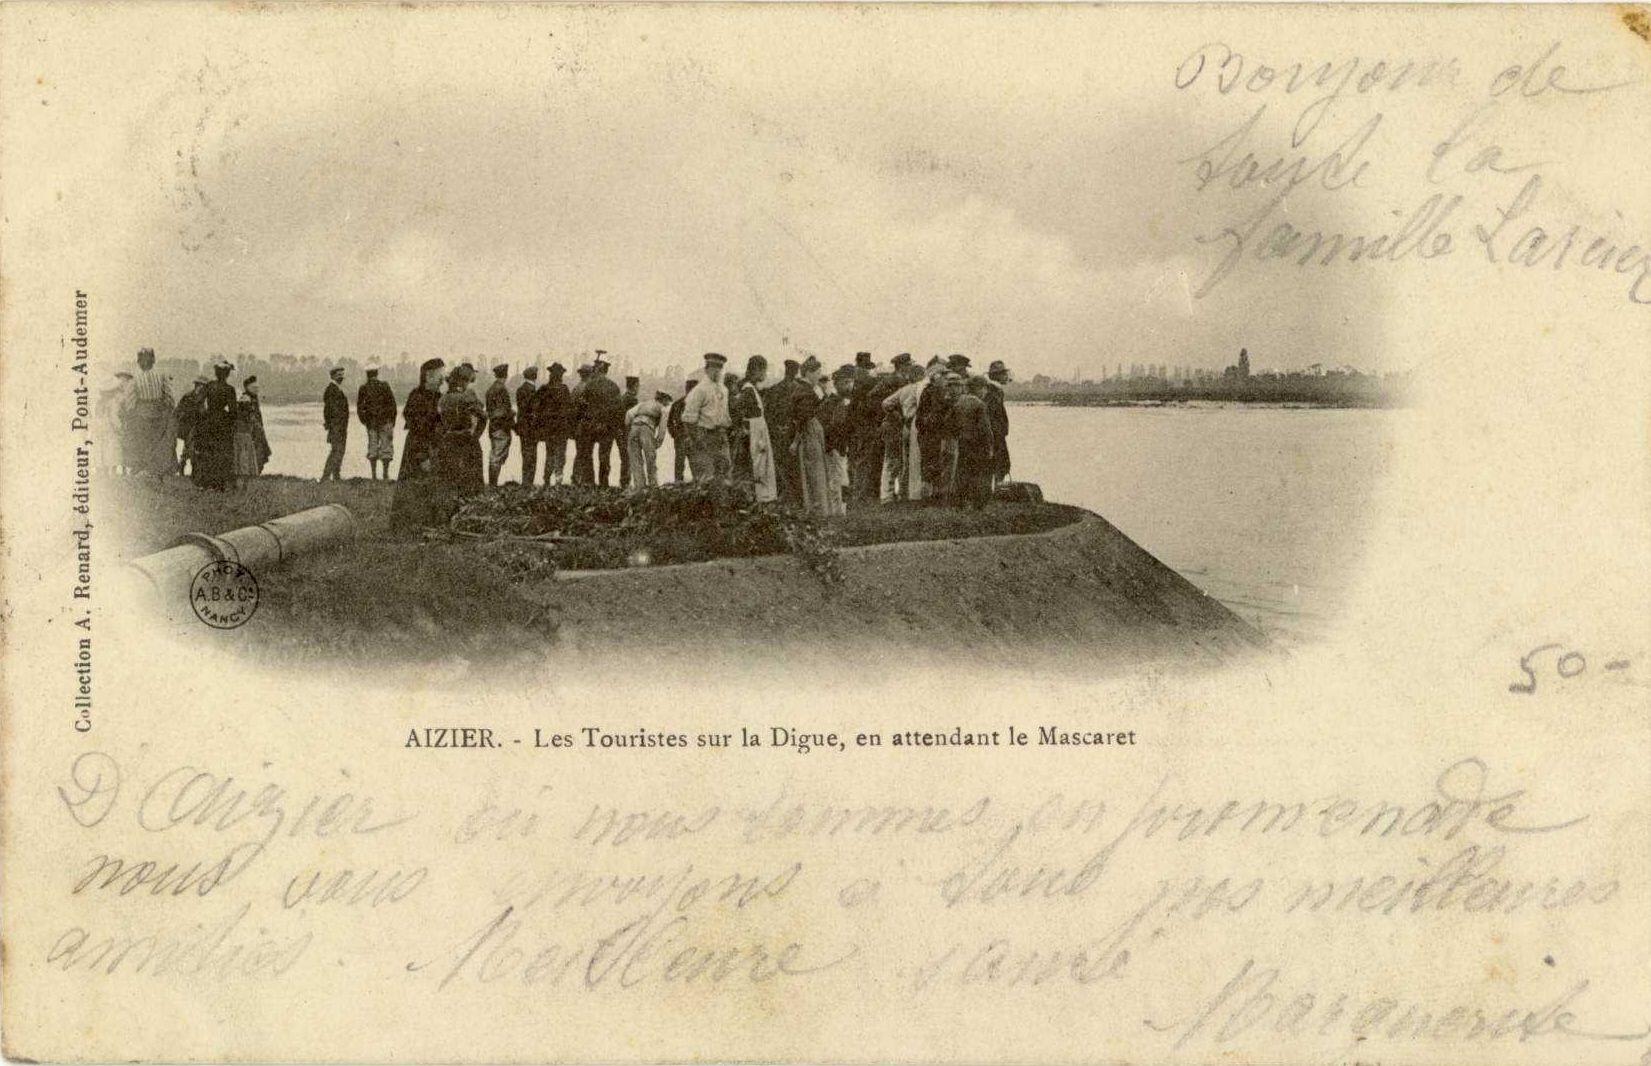 Bonjour de
toute la
famille
Collection A. Renard, éditeur, Pont-Audemer
PHOT
A.B & Cie
NANCY
50-
AIZIER. - Les Touristes sur la Digue, en attendant le Mascaret
D'Aizier où nous sommes en promenade
nous vous envoyons à tous nos meilleures
amitiés. Meilleure santé
Marguerite